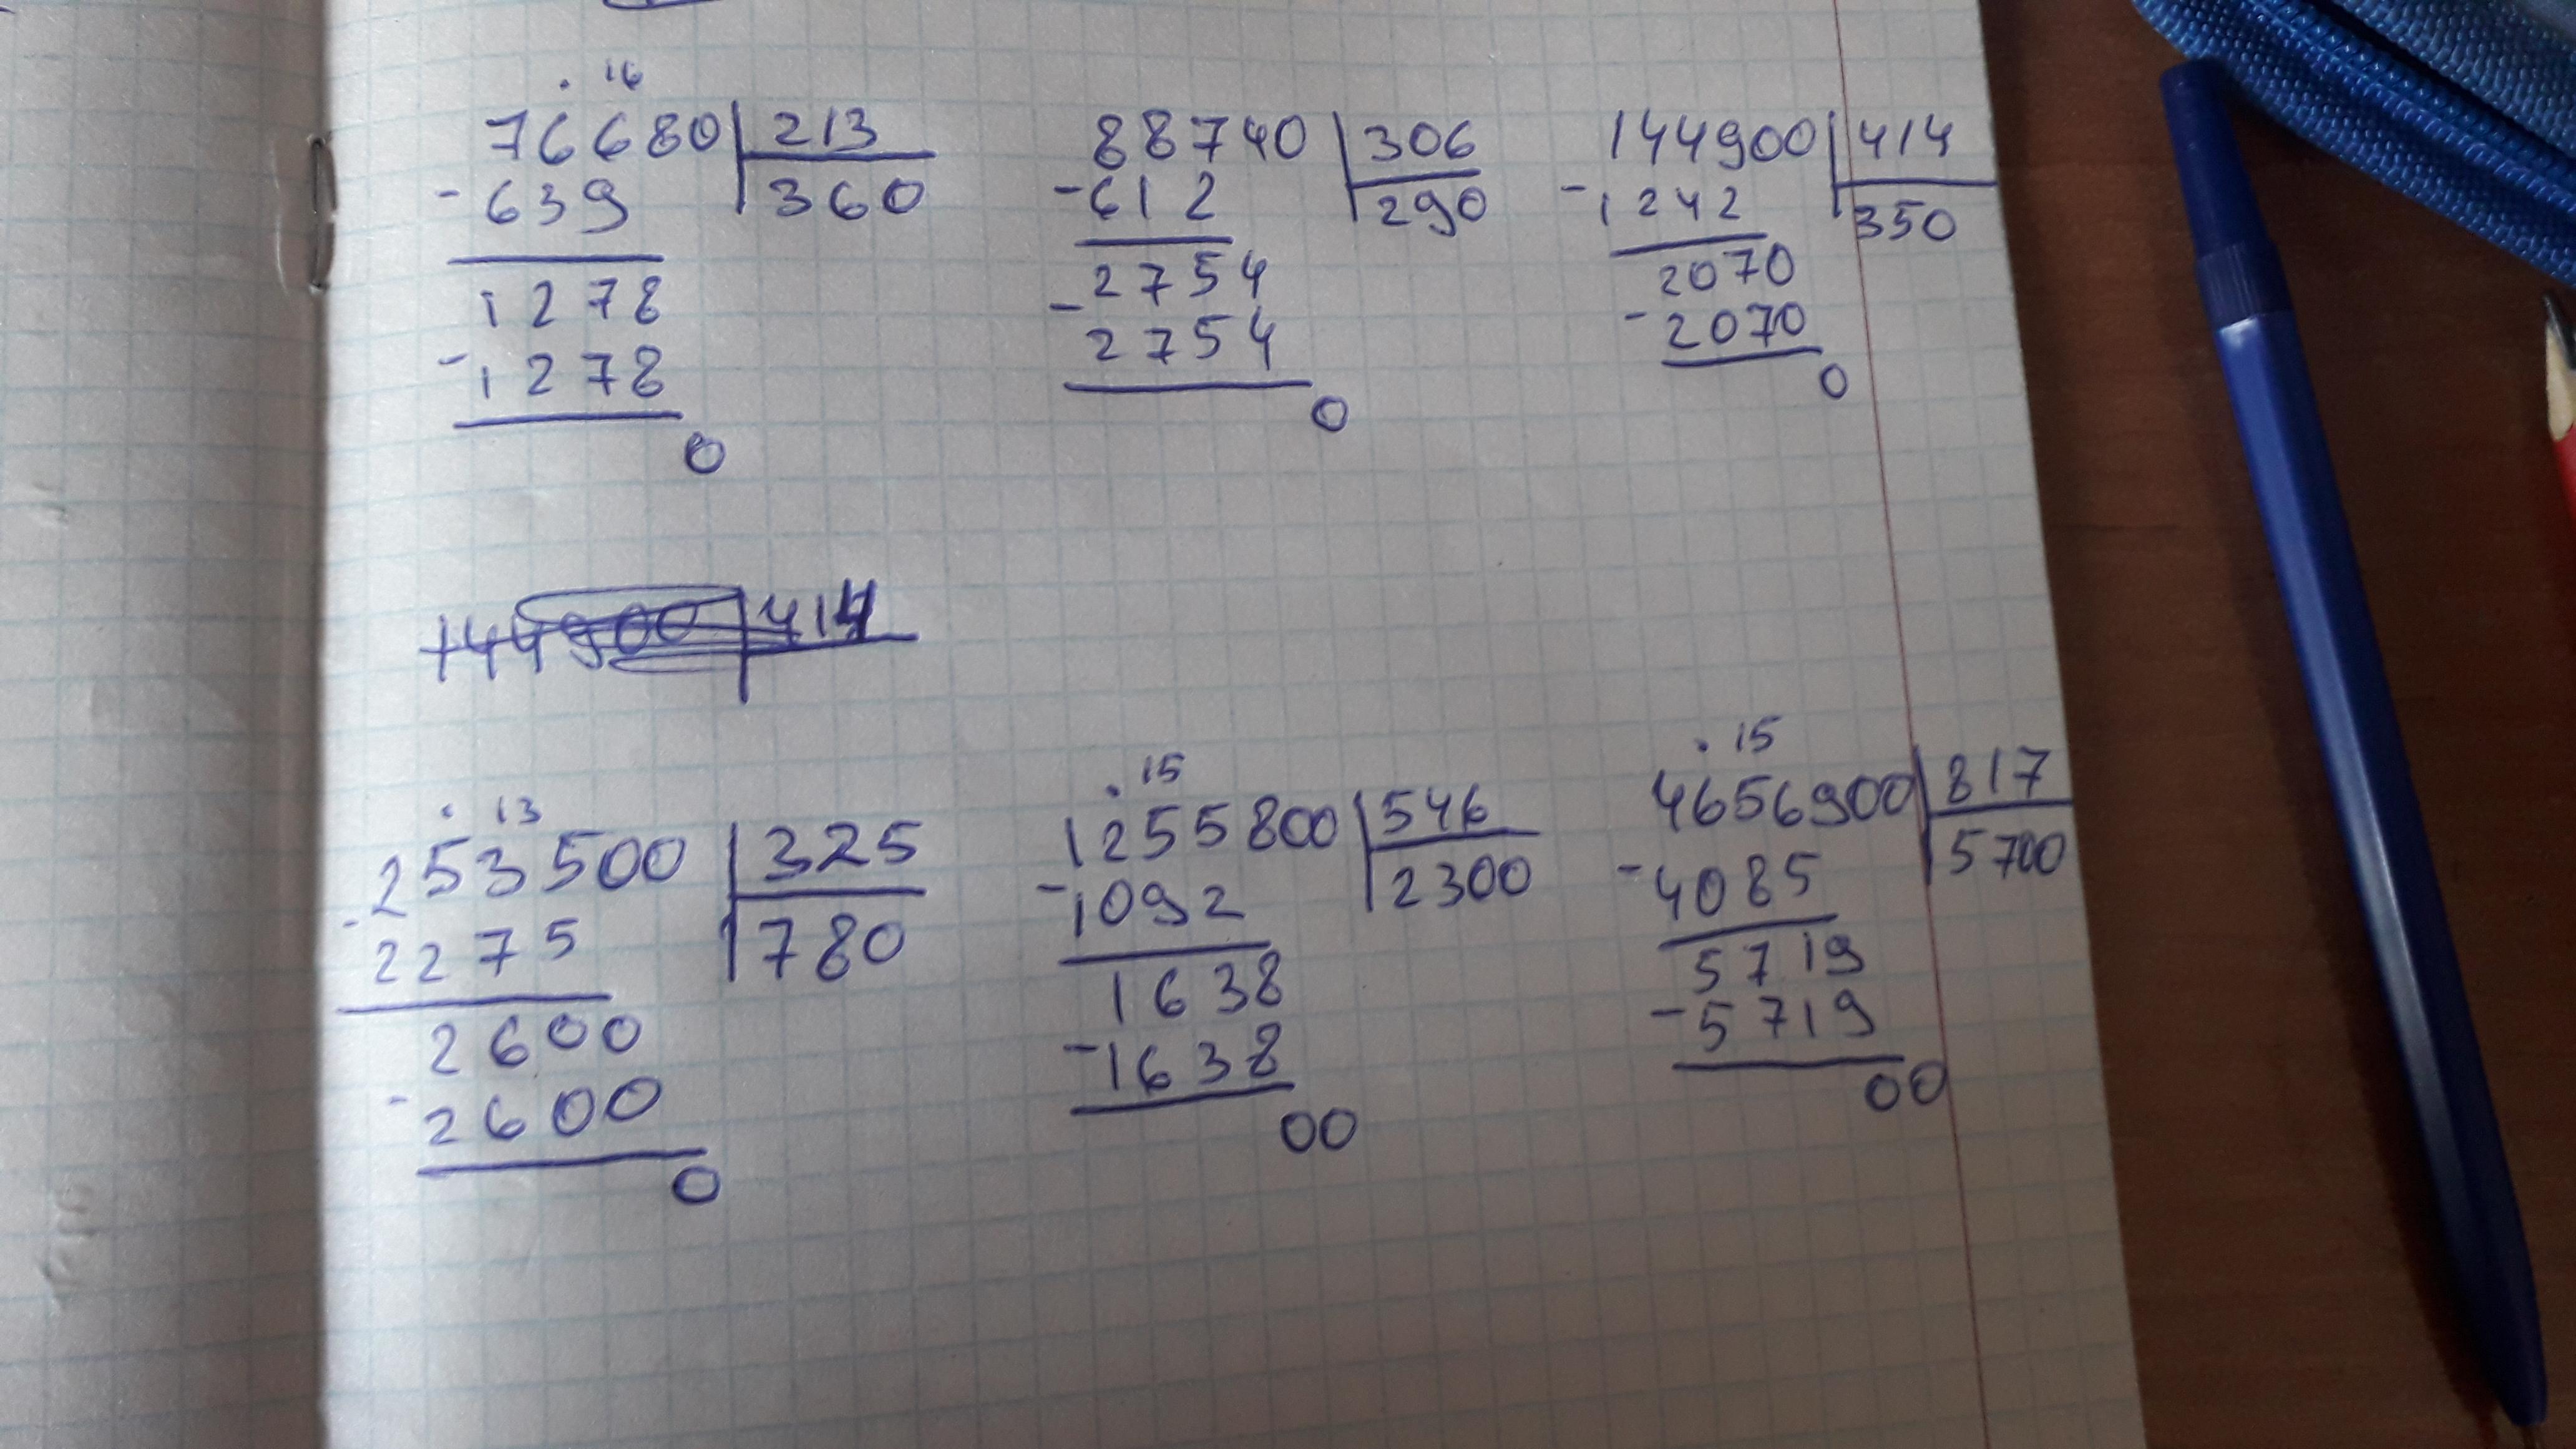 . 16
76680 213
- 639 360
1278
- 1278
0
88740 306
- 612 290
2754
- 2754
0
144900 414
- 1242 350
2070
- 2070
0
144900 414
. 13
253500 325
- 2275 780
2600
- 2600
0
. 15
1255800 546
- 1092 2300
1638
- 1638
00
. 15
4656900 817
- 4085 5700
5719
- 5719
00